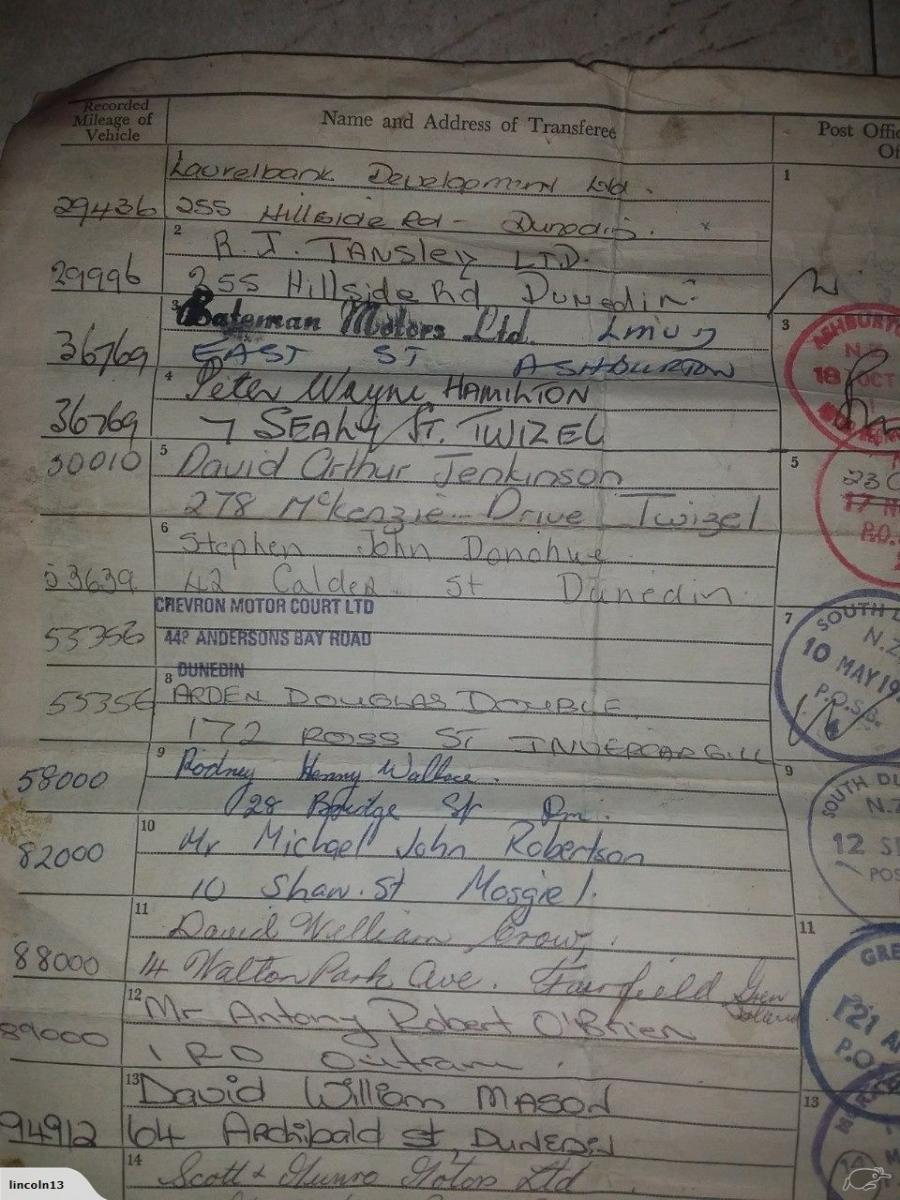 Recorded
Mileage of
Vehicle
Name and Address of Transferee
Post Offi
Of
1
Laurelbank Development Ltd.
29436
255 Hillside Rd - Dunedin.
2
R. J. TANSley LTD.
29996
255 Hillside Rd Dunedin
3
Bateman Motors Ltd.
36769
EAST ST ASHBURTON
ASHBURTO
N
18 OCT
4
Peter Wayne HAMILTON
36769
7 SEALY ST. TWIZEL
30010
5
David Arthur Jenkinson
278 McKenzie Drive Twizel
5
23 O
17 N
P.O.
6
Stephen John Donohue
53639
42 Calder St Dunedin
CHEVRON MOTOR COURT LTD
55356
442 ANDERSONS BAY ROAD
DUNEDIN
7
SOUTH D
N.Z
10 MAY 19
P.O.S.B.
8
55356
ARDEN DOUGLAS DOUBLE
172 ROSS ST INVERCARGILL
9
58000
Rodney Henry Wallace.
128 Bridge St Dn.
9
SOUTH DU
N.Z
12 S
POS
10
82000
Mr Michael John Robertson
10 Shaw. St Mosgiel.
11
David William Crow,
88000
14 Walton Park Ave. Fairfield Green Island
11
GRE
21 A
P.O.
12
89000
Mr Antony Robert O'Brien
1 RD Outram.
13
David William MASON
94912
64 Archibald st, DUNEDIN
13
14
Scott & Munro Motors Ltd
lincoln13